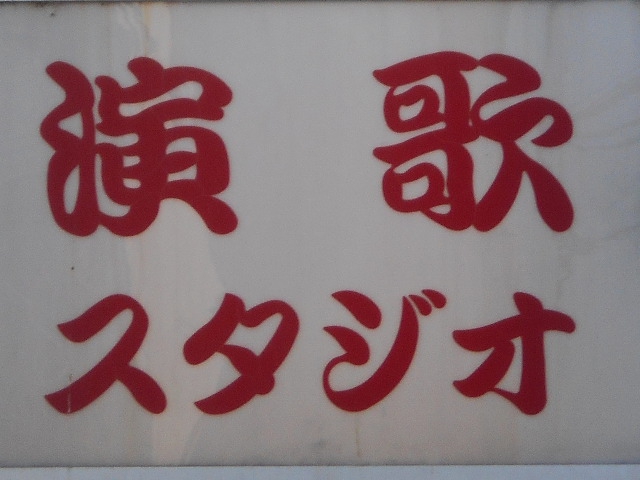 演歌
スタジオ